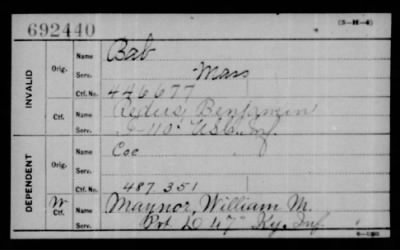 692440
(3-H-4)
INVALID
Orig.
Name
Bab
Serv.
Mass
Ctf. No.
446677
Ctf.
Name
Benjamin
Serv.
I-110" U.S.C. Inf.
DEPENDENT
Orig.
Name
Coc
Serv.
Ctf. No.
487351
W
Ctf.
Name
Maynor, William M.
Serv.
Pvt. D 47" Ky. Inf.